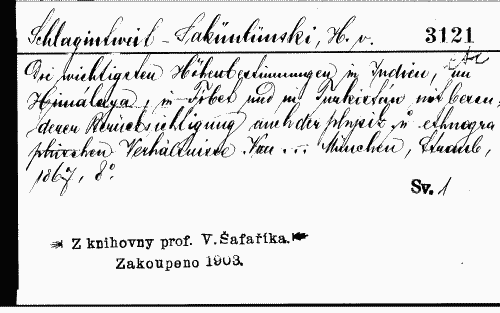 Schlagintweit-Sakünlünski, H. v. 3121
Die wichtigsten Höhenbestimmungen in Indien, im
Himálaya, in Tibet und in Turkistán mit beson-
derer Berücksichtigung auch der physik. u. ethnogra
phischen Verhältnisse. Von ... München, Straub,
1867, 8°.
Sv. 1
Z knihovny prof. V. Šafaříka.
Zakoupeno 1903.